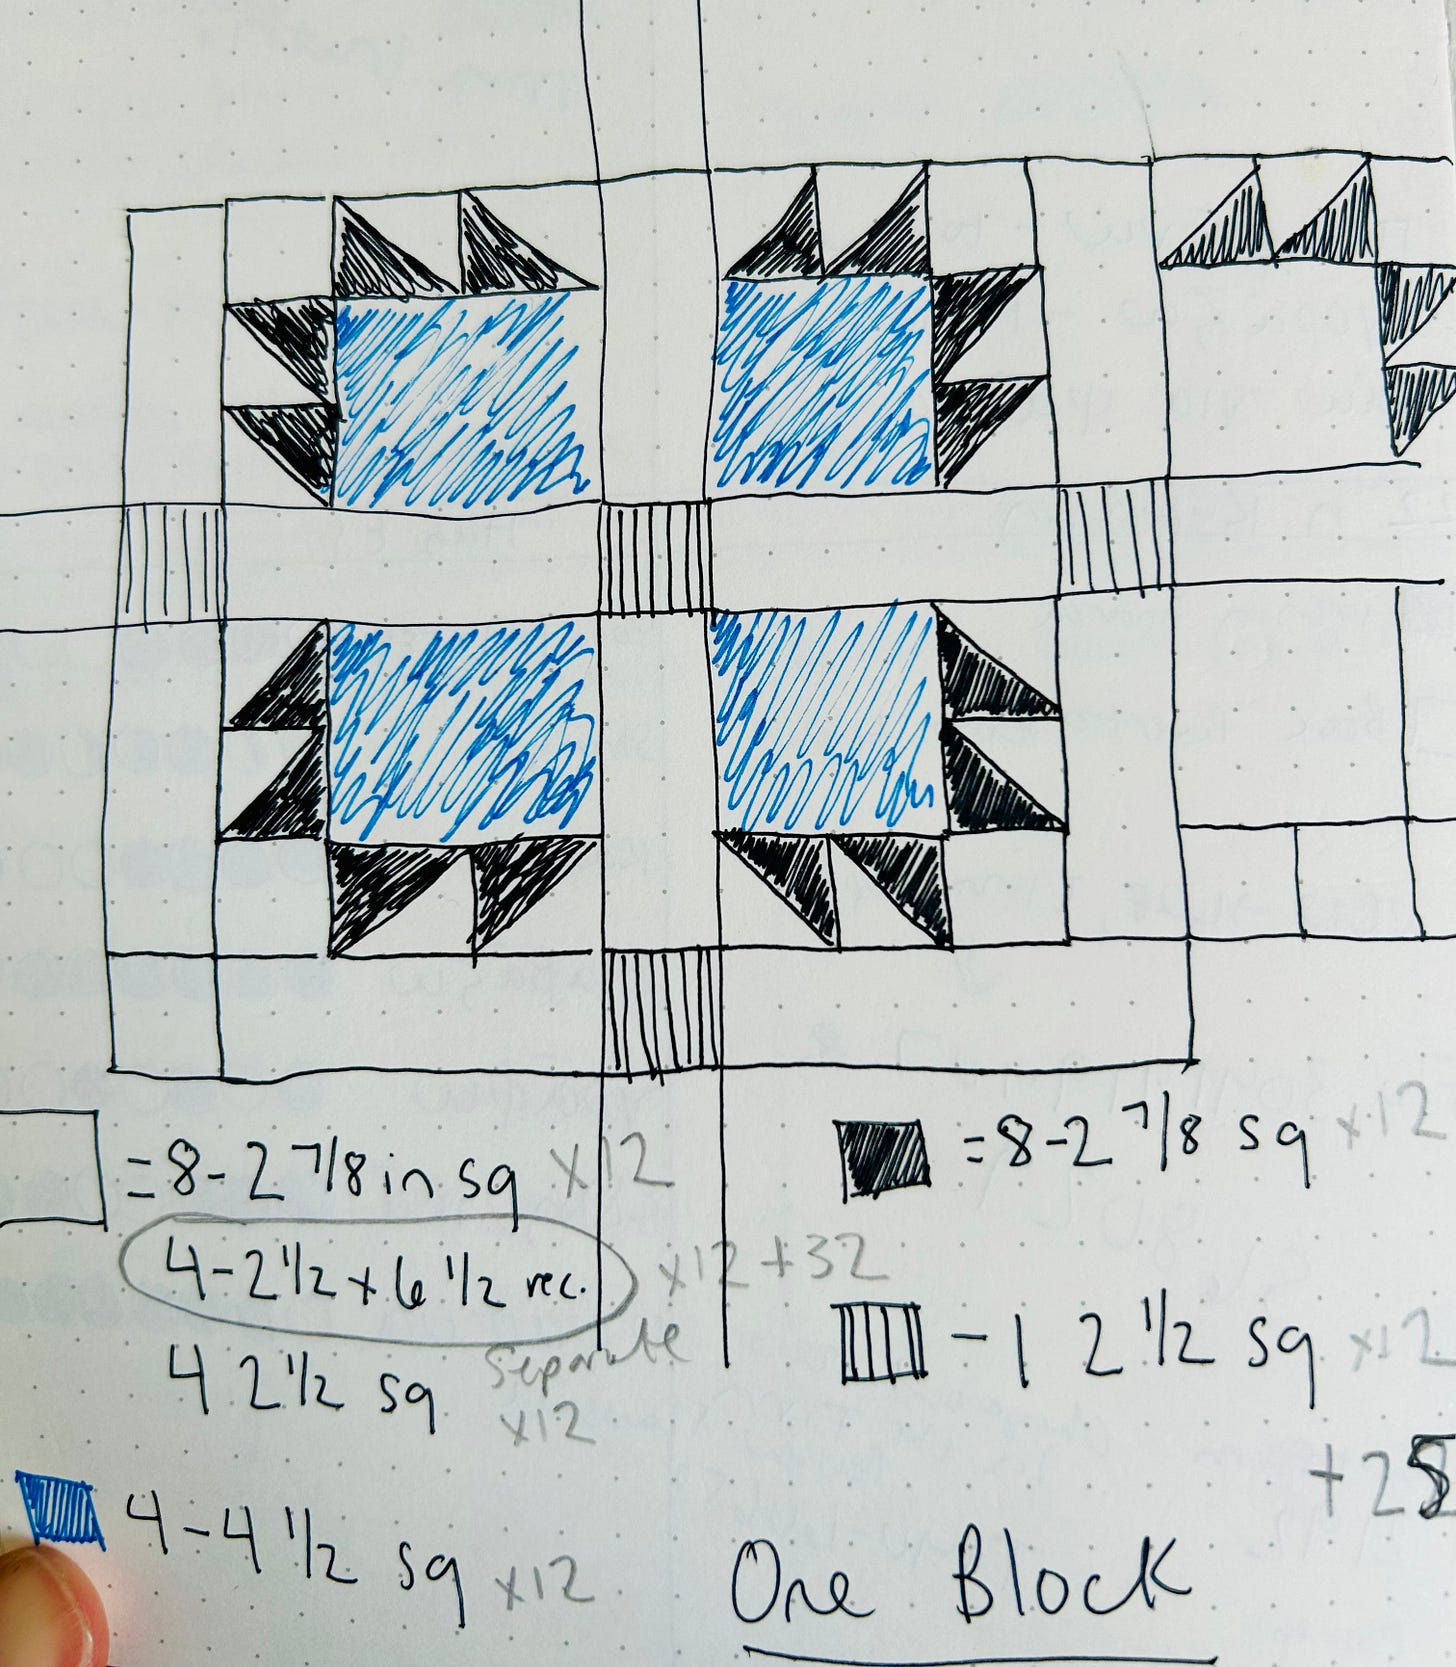 = 8 - 2 7/8 in sq x12
4 - 2 1/2 x 6 1/2 rec. x12 + 32
Separate
4 2 1/2 sq x12
4 - 4 1/2 sq x12
= 8 - 2 7/8 sq x12
- 1 2 1/2 sq x12
One Block